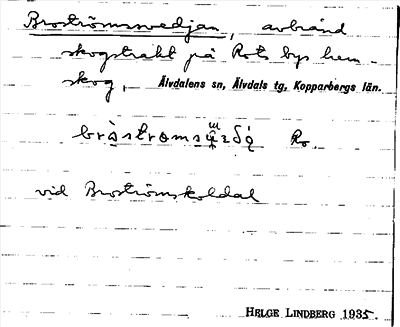 Broströmssvedjan, avbränd
skogstrakt på Rots bys hem-
skog, Älvdalens sn, Älvdals tg, Kopparbergs län.
Ro.
vid Broströmskoldal
HELGE LINDBERG 1935.